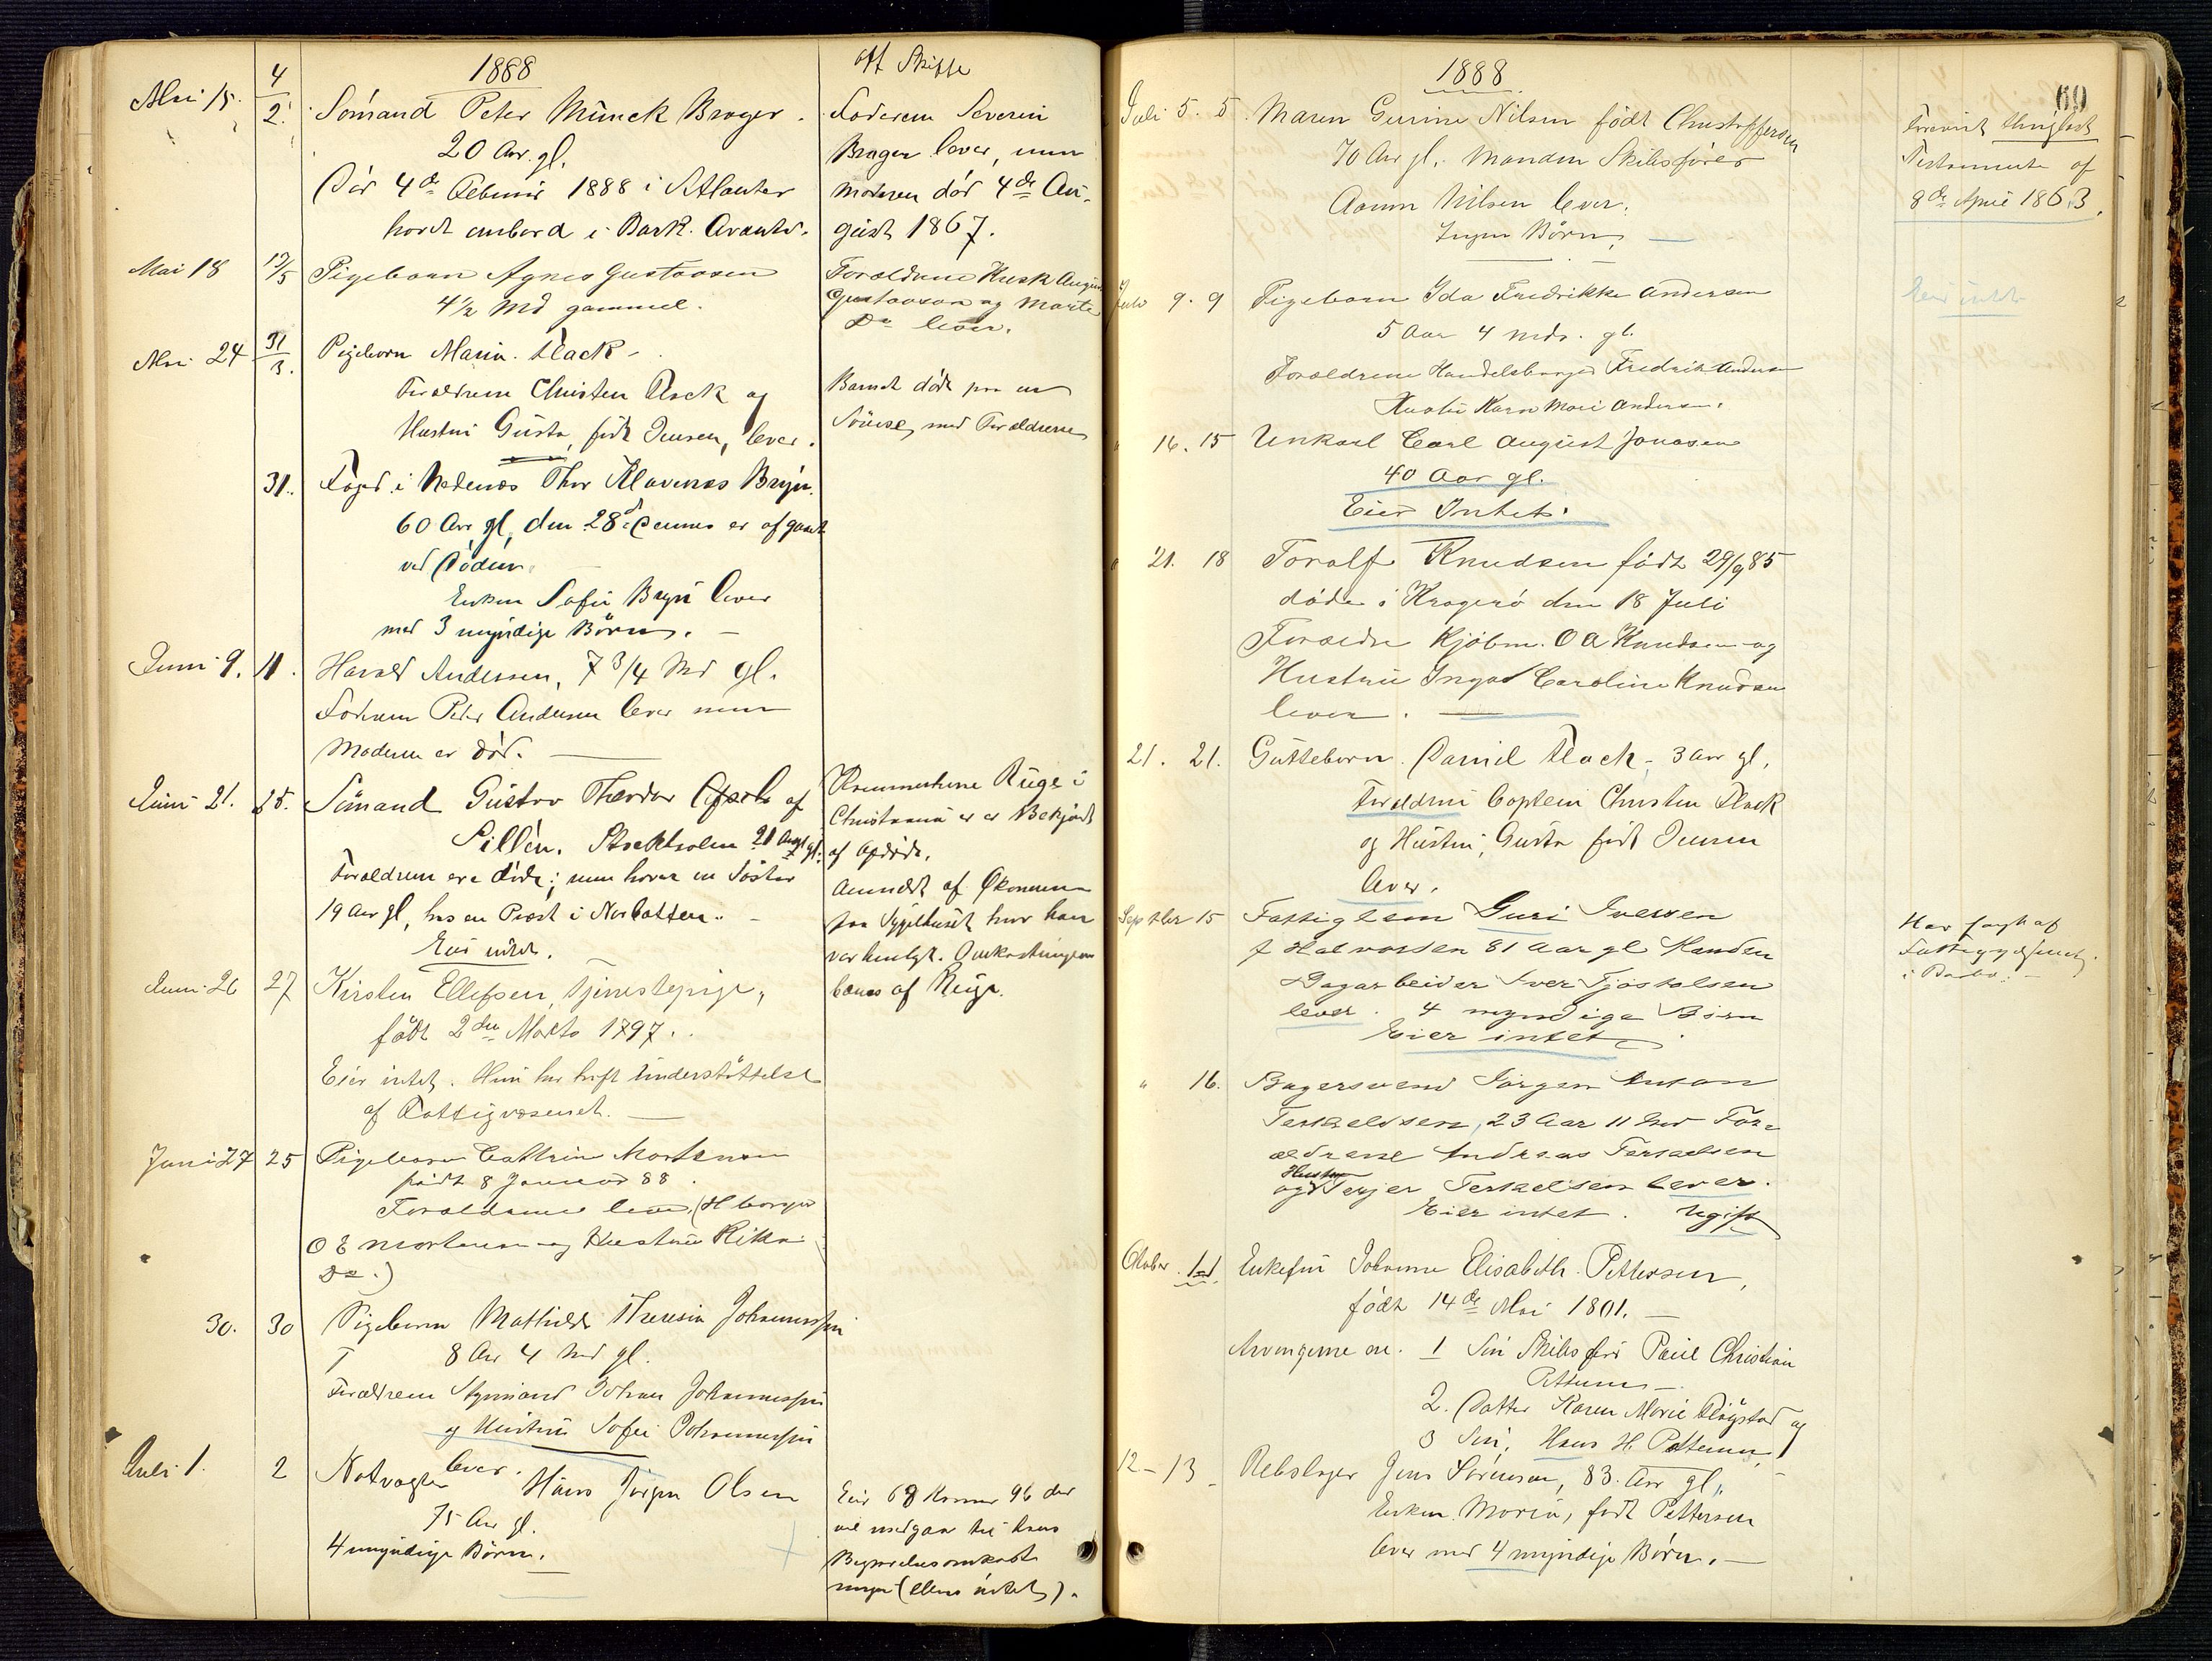 1888
off Skifte
Mai 15.
4/2.
Sömand Peter Munck Brager.
20 Aar. gl.
Död 4de Februar 1888 i Atlanter
havet ombord i Bark. Avanti.
Faderen Severin
Brager lever, men
moderen död 4de Au-
gust 1867.
Mai 18
12/5
Pigebarn Agnes Gustavsen
4½ Md gammel.
Forældrene Husk August
Gustavson og Marte
Do lever.
Mai 24
31/3.
Pigebarn Maria Flack
Forældrene Christen Flack og
Hustru Gusta, født Jensen, lever.
Barnet døde paa en
Söreise med Forældrene
31.
Foged i Nedenæs Thor Klavenæs Bryn.
60 Aar gl, den 28de dennes er afgaaet
ved Döden.
Enken Sofie Bryn lever
med 3 myndige Børn.
Juni 9.
11.
Harald Andersen, 7 3/4 Md gl.
Faderen Peder Andersen lever men
Moderen er död.
Juni 21.
25.
Sömand Gustav Theodor af
Sillén. Stockholm 21 Aar gl.
Forældrene ere döde; men haver en Söster
19 Aar gl, hos en Præst i Norbotten.
Eier intet.
Ruge i
Christiania er Bekjendt
af afdöde.
Anmeldt af Økonomen
paa Sygehuset hvor han
var henlagt. Omkostningerne
bæres af Ruge.
Juni 26
27
Kirsten Ellefsen, Tjenestepige,
født 2den Marts 1797.
Eier intet. Hun har havt Understöttelse
af Fattigvæsenet.
Juni 27
25
Pigebarn Cathrin Mortensen
født 8 Januar 88.
Forældrene lever (H borger
O E Mortensen og Hustru Rikke
Do.)
30.
30
Pigebarn Mathilde Theresia Johannessen
8 Aar 4 Md gl.
Forældrene Styrmand Johan Johannessen
og Hustru Sofie Johannessen
lever.
Juli 1.
2
Natvagter Hans Jörgen Olsen
75 Aar gl.
4 myndige Børn.
Eier 68 Kroner 96 der
vil medgaa til hans
Begravelsesomkost
ninger (ellers intet).
1888.
69
Juli 5.
5.
Maren Gurine Nilsen født Christoffersen
70 Aar gl. Manden Skibsfører
Aanon Nilsen lever.
Ingen Børn.
Forevist thinglæst
Testamente af
8de April 1863.
Juli 9.
9
Pigebarn Ida Fredrikke Andersen
5 Aar 4 mdr. gl.
Forældrene Handelsborger Fredrik Andersen
Hustru Karen Marie Andersen.
Eier intet
16.
15
Unkarl Carl August Jonasen
40 Aar gl.
Eier Intet.
21.
18
Toralf Knudsen født 29/9 85
döde i Kragerö den 18 Juli
Forældre Kjøbm. O A Knudsen og
Hustru Inga Caroline Knudsen
lever.
21.
21.
Gutteborn Daniel Flack, 3 Aar gl.
Forældrene Captein Christen Flack
og Hustru, Gusta født Jensen
lever.
Septbr 15
Fattiglem Guri Iversen
f Halvorsen 81 Aar gl Manden
Dagarbeider Iver Tjostolsen
lever. 4 myndige Børn
Eier intet.
Har faaet af
Fattigvæsenet
i Barbo.
"
16.
Bagersvend Jörgen Anton
Terkelsen, 23 Aar 11 Md For-
ældrene Andreas Terkelsen
og Hustru Terjer Terkelsen lever.
Eier intet. Ugift
Oktober
1st.
Enkefru Johanne Elisabeth Pettersen,
født 14de Mai 1801.
Arvingerne ere. 1 Sön Skibsförer Paul Christian
Pettersen
2. Datter Karen Marie Flögstad og
3 Sön, Hans H. Pettersen
12 - 13
Rebslager Jens Sörensen, 83 Aar gl.
Enken Maria, født Pettersen
lever med 4 myndige Børn.